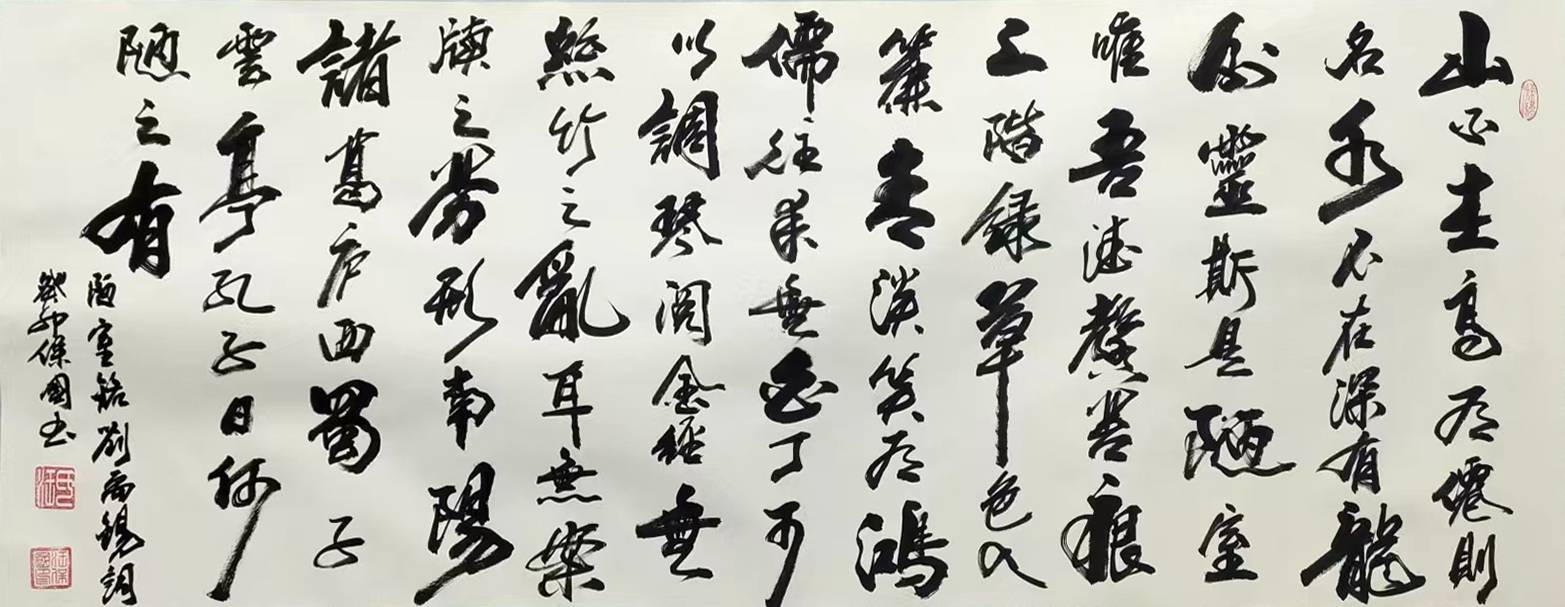 山不在高有僊則
名水不在深有龍
則靈斯是陋室
唯吾德馨苔痕
上階緑草色入
簾青談笑有鴻
儒往来無白丁可
以調琴閲金經無
絲竹之亂耳無案
牘之勞形南陽
諸葛庐西蜀子
雲亭孔子曰何
陋之有
陋室銘劉禹錫詞
癸卯保國书